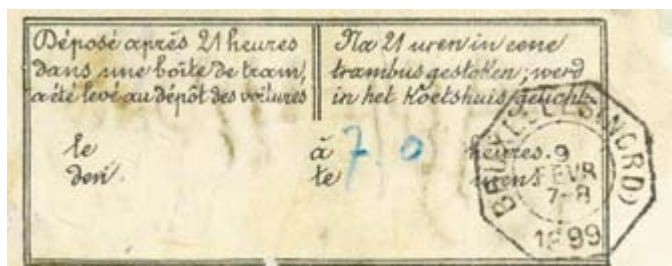 Déposé après 21 heures
dans une boîte de tram,
a été levé au dépôt des voitures
Na 21 uren in eene
trambus gestoken; werd
in het Koetshuis gelicht.
le à 7.0 heures.
den te uren
BRUXELLES (NORD)
9
FEVR
7-8
1899